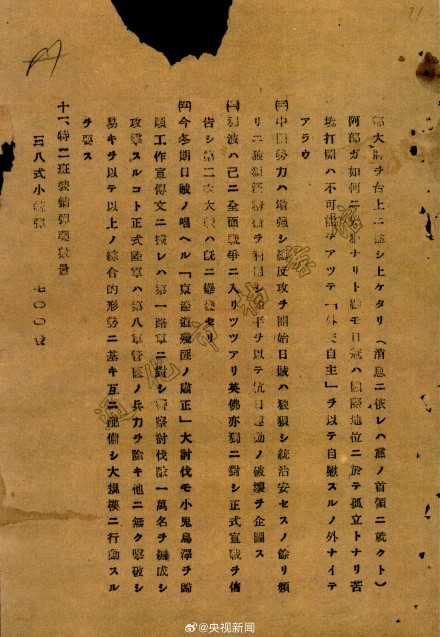 部大将ヲ台上ニ誘シ上ケタリ（消息ニ依レハ黨ノ首領ニ就クト）
阿部ガ如何ニ ナリト雖モ日寇ハ國際地位ニ於テ孤立トナリ苦
境打開ハ不可能デアツテ「外交自主」ヲ以テ自慰スルノ外ナイデ
アラウ
㈢中國勢力ハ増强シ總反攻ヲ開始日賊ハ狼狽シ統治安セスノ餘リ頻
リニ 漢奸 ヲ利用シ ヲ以テ抗日運動ノ破壞ヲ企圖ス
獨波ハ已ニ全面戰爭ニ入リツツアリ英佛亦獨ニ對シ正式宣戰ヲ佈
告シ第二次大戰ハ既ニ爆發セリ
㈣今冬期日賊ノ唱ヘル「東邊道殘匪ノ肅正」大討伐モ小鬼烏澤ヲ歸
順工作宣傳文ニ據レハ第一路軍ニ對シ警察討伐隊一萬名ヲ編成シ
攻擊スルコト正式陸軍ハ第八軍管區ノ兵力ヲ除キ他ニ無ク擊破シ
易キヲ以テ以上ノ綜合的形勢ニ基キ互ニ準備シ大規模ニ行動スル
ヲ要ス
十一、特二班裝備彈藥數量
三八式小銃彈 七〇〇發
通化市档案馆
@央视新闻